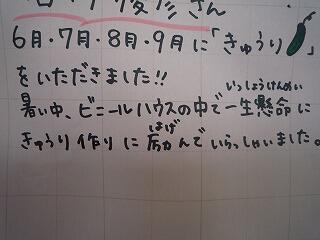 さん
6月・7月・8月・9月に「きゅうり
をいただきました!!
いっしょうけんめい
暑い中、ビニールハウスの中で一生懸命に
はげ
きゅうり作りに励んでいらっしゃいました。